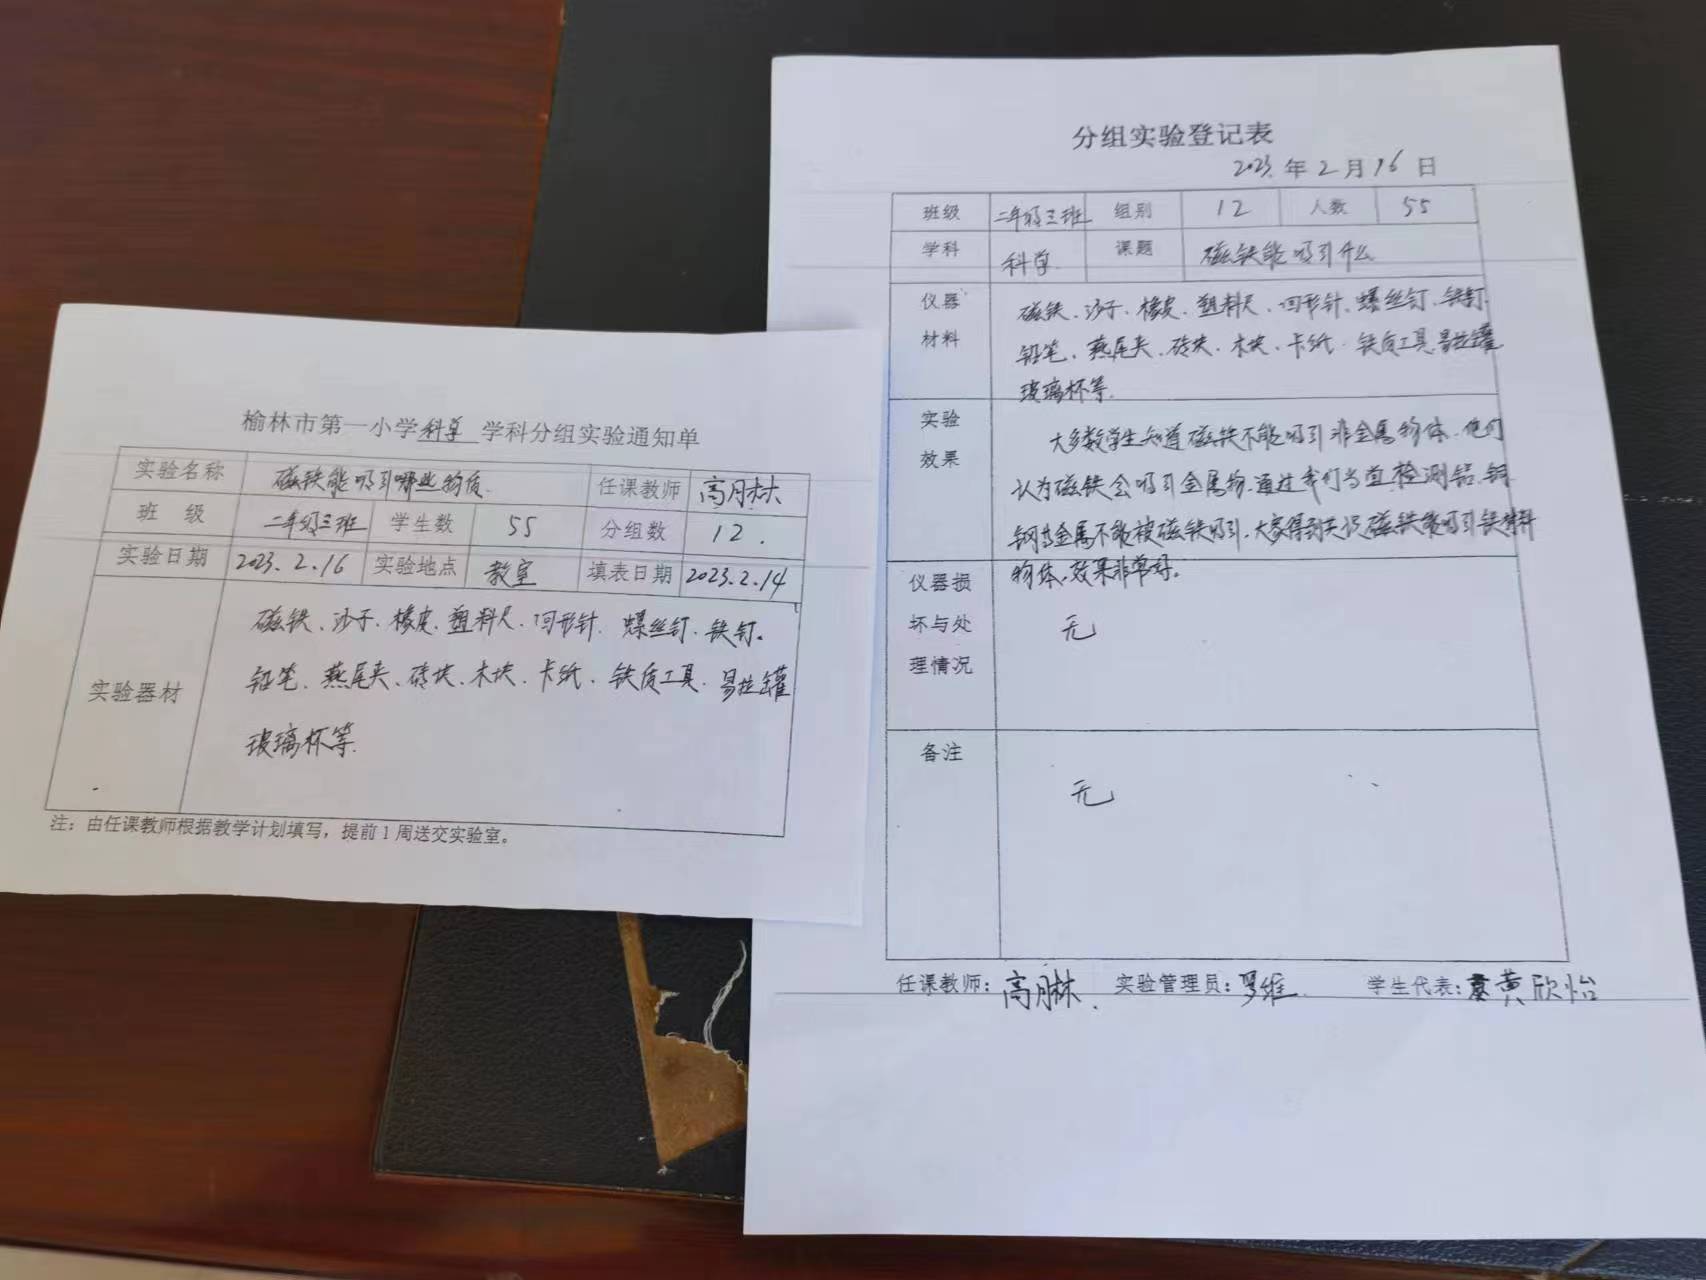 榆林市第一小学科学学科分组实验通知单
实验名称 磁铁能吸引哪些物质 任课教师 高月林
班 级 二年级三班 学生数 55 分组数 12
实验日期 2023.2.16 实验地点 教室 填表日期 2023.2.14
磁铁、沙子、橡皮、塑料尺、回形针、螺丝钉、铁钉。
实验器材 铅笔、燕尾夹、砖块、木块、卡纸、铁质工具、易拉罐
玻璃杯等.
注：由任课教师根据教学计划填写，提前1周送交实验室。
分组实验登记表
2023.年2月16日
班级 二年级三班 组别 12 人数 55
学科 科学 课题 磁铁能吸引什么
仪器 磁铁、沙子、橡皮、塑料尺、回形针、螺丝钉、铁钉.
材料 铅笔、燕尾夹、砖块、木块、卡纸、铁质工具、易拉罐
玻璃杯等.
实验 大多数学生知道磁铁不能吸引非金属物体.他们
效果 认为磁铁会吸引金属物.通过我们当堂检测铝、铜
等金属不能被磁铁吸引.大家得到共识磁铁能吸引铁材料
物体.效果非常好。
仪器损
坏与处 无
理情况
备注
无
任课教师：高月林. 实验管理员：罗维. 学生代表：黄欣怡